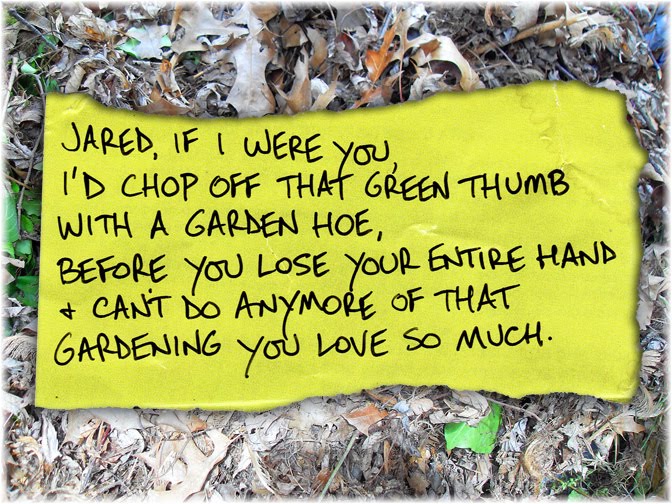 JARED, IF I WERE YOU,
I'D CHOP OFF THAT GREEN THUMB
WITH A GARDEN HOE,
BEFORE YOU LOSE YOUR ENTIRE HAND
& CAN'T DO ANYMORE OF THAT
GARDENING YOU LOVE SO MUCH.